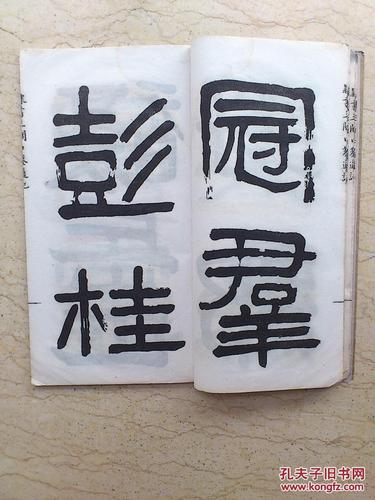 冠羣
彭桂
孔夫子旧书网
www.kongfz.com